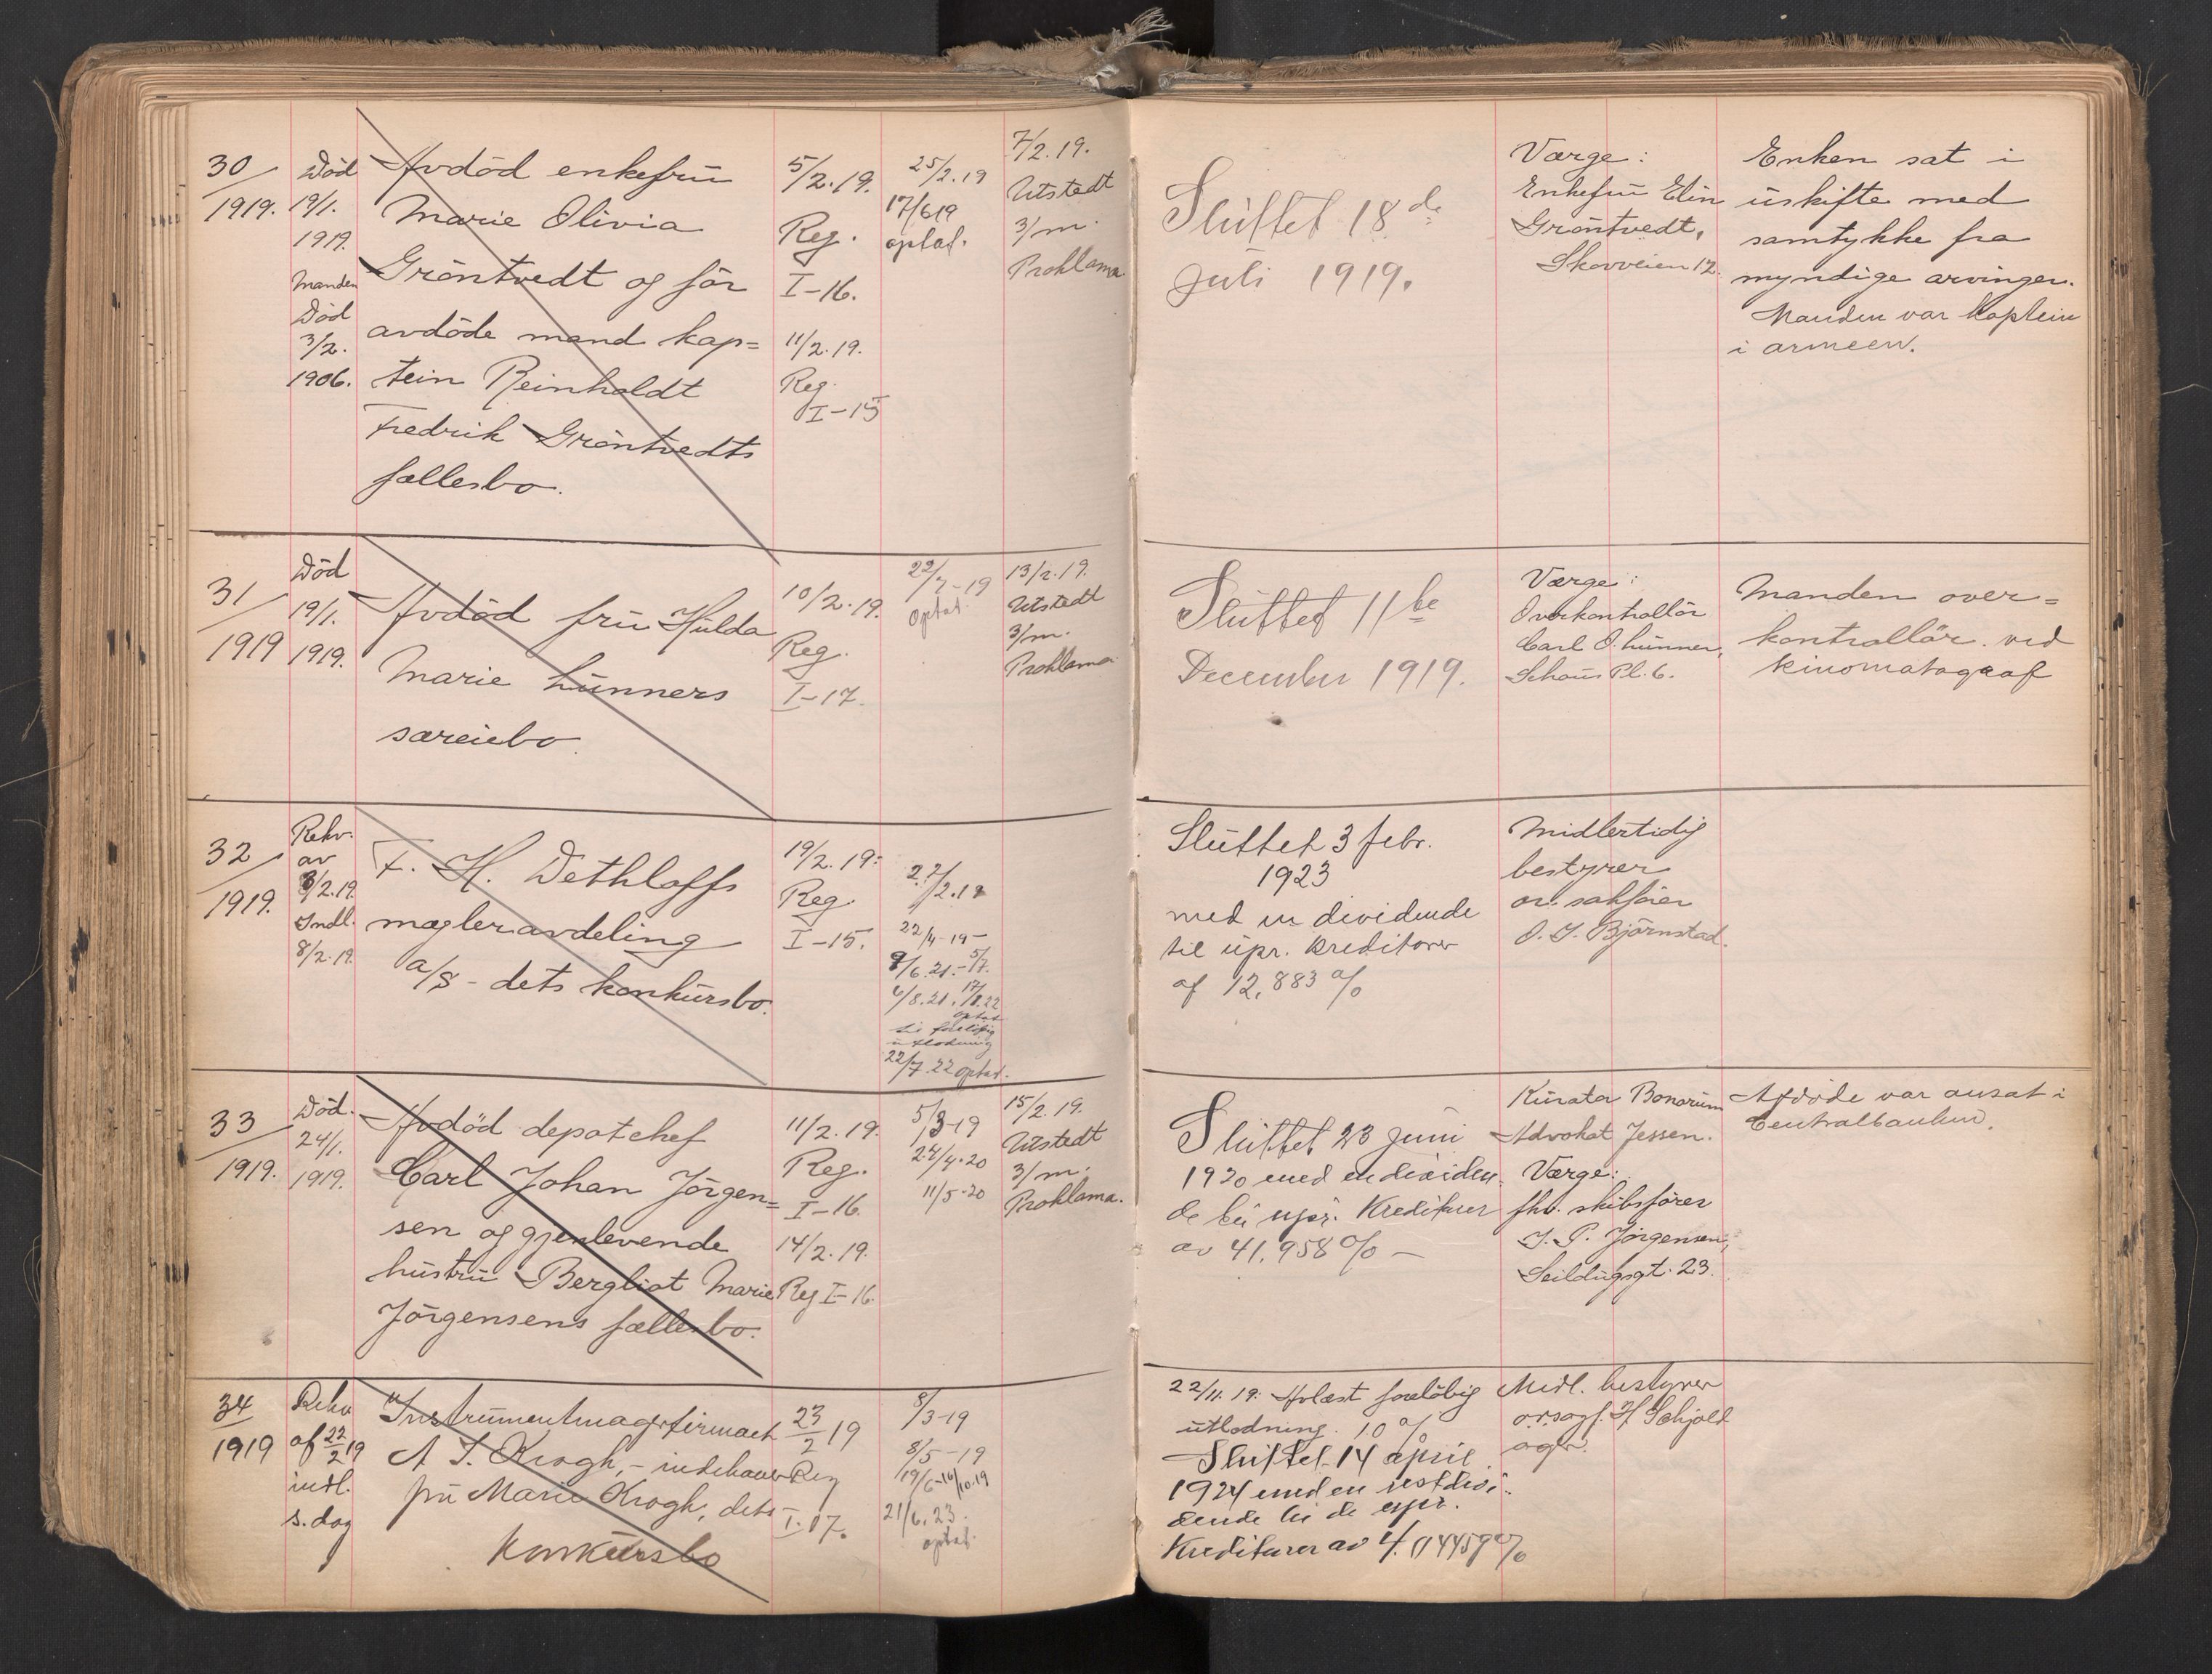 30
1919.
Död
19/1.
1919.
Manden
Död
3/2.
1906.
Avdöd enkefrū
Marie Olivia
Gröntvedt og för
avdöde mand kap=
tein Reinholdt
Fredrik Gröntvedts
fællesbo.
5/2.19.
Reg.
I-16.
11/2.19.
Reg.
I-15
25/2.19
17/6 19
optat.
7/2.19.
Utstedt
3/m.
Proklama
Slūttet 18de
Juli 1919.
Værge:
Enkefrū Elin
Gröntvedt,
Skovveien 12.
Enken sat i
ūskifte med
samtykke fra
myndige arvinger.
Manden var kaptein
i armeen.
31
1919
Död
19/1.
1919.
Avdöd frū Hūlda
Marie Lūnners
særeiebo.
10/2.19.
Reg.
I-17.
22/7-19
optat.
13/2.19.
Utstedt
3/m.
Proklama
Slūttet 11te
December 1919.
Værge:
Overkontrollör
Carl O. Lūnner,
Schoūs Pl. 6.
Manden over=
kontrollör ved
kinomatograf
32
1919.
Rekv.
av
8/2.19.
Indl.
8/2.19.
F. H. Dethloffs
mægleravdeling
a/s - dets konkūrsbo.
19/2.19.
Reg.
I-15.
22/2.19
22/4-19-
9/6.21.-5/7.
6/8.21. 17/1.22
optat
til foreløbig
ūtlodning
22/7.22 optat.
Slūttet 3 febr.
1923
med en dividende
til ūpr. kreditorer
af 12,883 %
Midlertidig
bestyrer
or. sakförer
O. J. Björnstad.
33
1919.
Död.
24/1.
1919.
Avdöd depotchef
Carl Johan Jörgen=
sen og gjenlevende
hūstrū Bergliot Marie
Jörgensens fællesbo.
11/2.19.
Reg.
I-16.
14/2.19.
Reg I-16.
5/3-19
24/4.20
11/5-20
15/2.19.
Utstedt
3/m.
Proklama.
Slūttet 23 Juni
1920 med en dividen-
de til ūpr. Kreditorer
av 41,958 % -
Kūrator Bonorūm
Advokat Jessen.
Værge:
fhv. skibsförer
J. P. Jörgensen,
Seildūgsgt. 23.
Afdöde var ansat i
Centralbanken.
34
1919
Rekv
af 22/2 19
indl.
s. dag
Instrūmentmagerfirmaet
A S. Krogh, - indehaver
frū Marie Krogh, dets
Konkūrsbo
23/2 19
Reg
I-17.
8/3-19
8/5-19
19/6-16/10.19
21/6.23.
optat.
22/11.19. Avlæst foreløbig
ūtlodning. 10 %
Slūttet 14 april
1924 med en restdivi-
dende til de ūpr.
Kreditorer av 4.
Midl. bestyrer
o.r.sagf. H. Schjoldager.